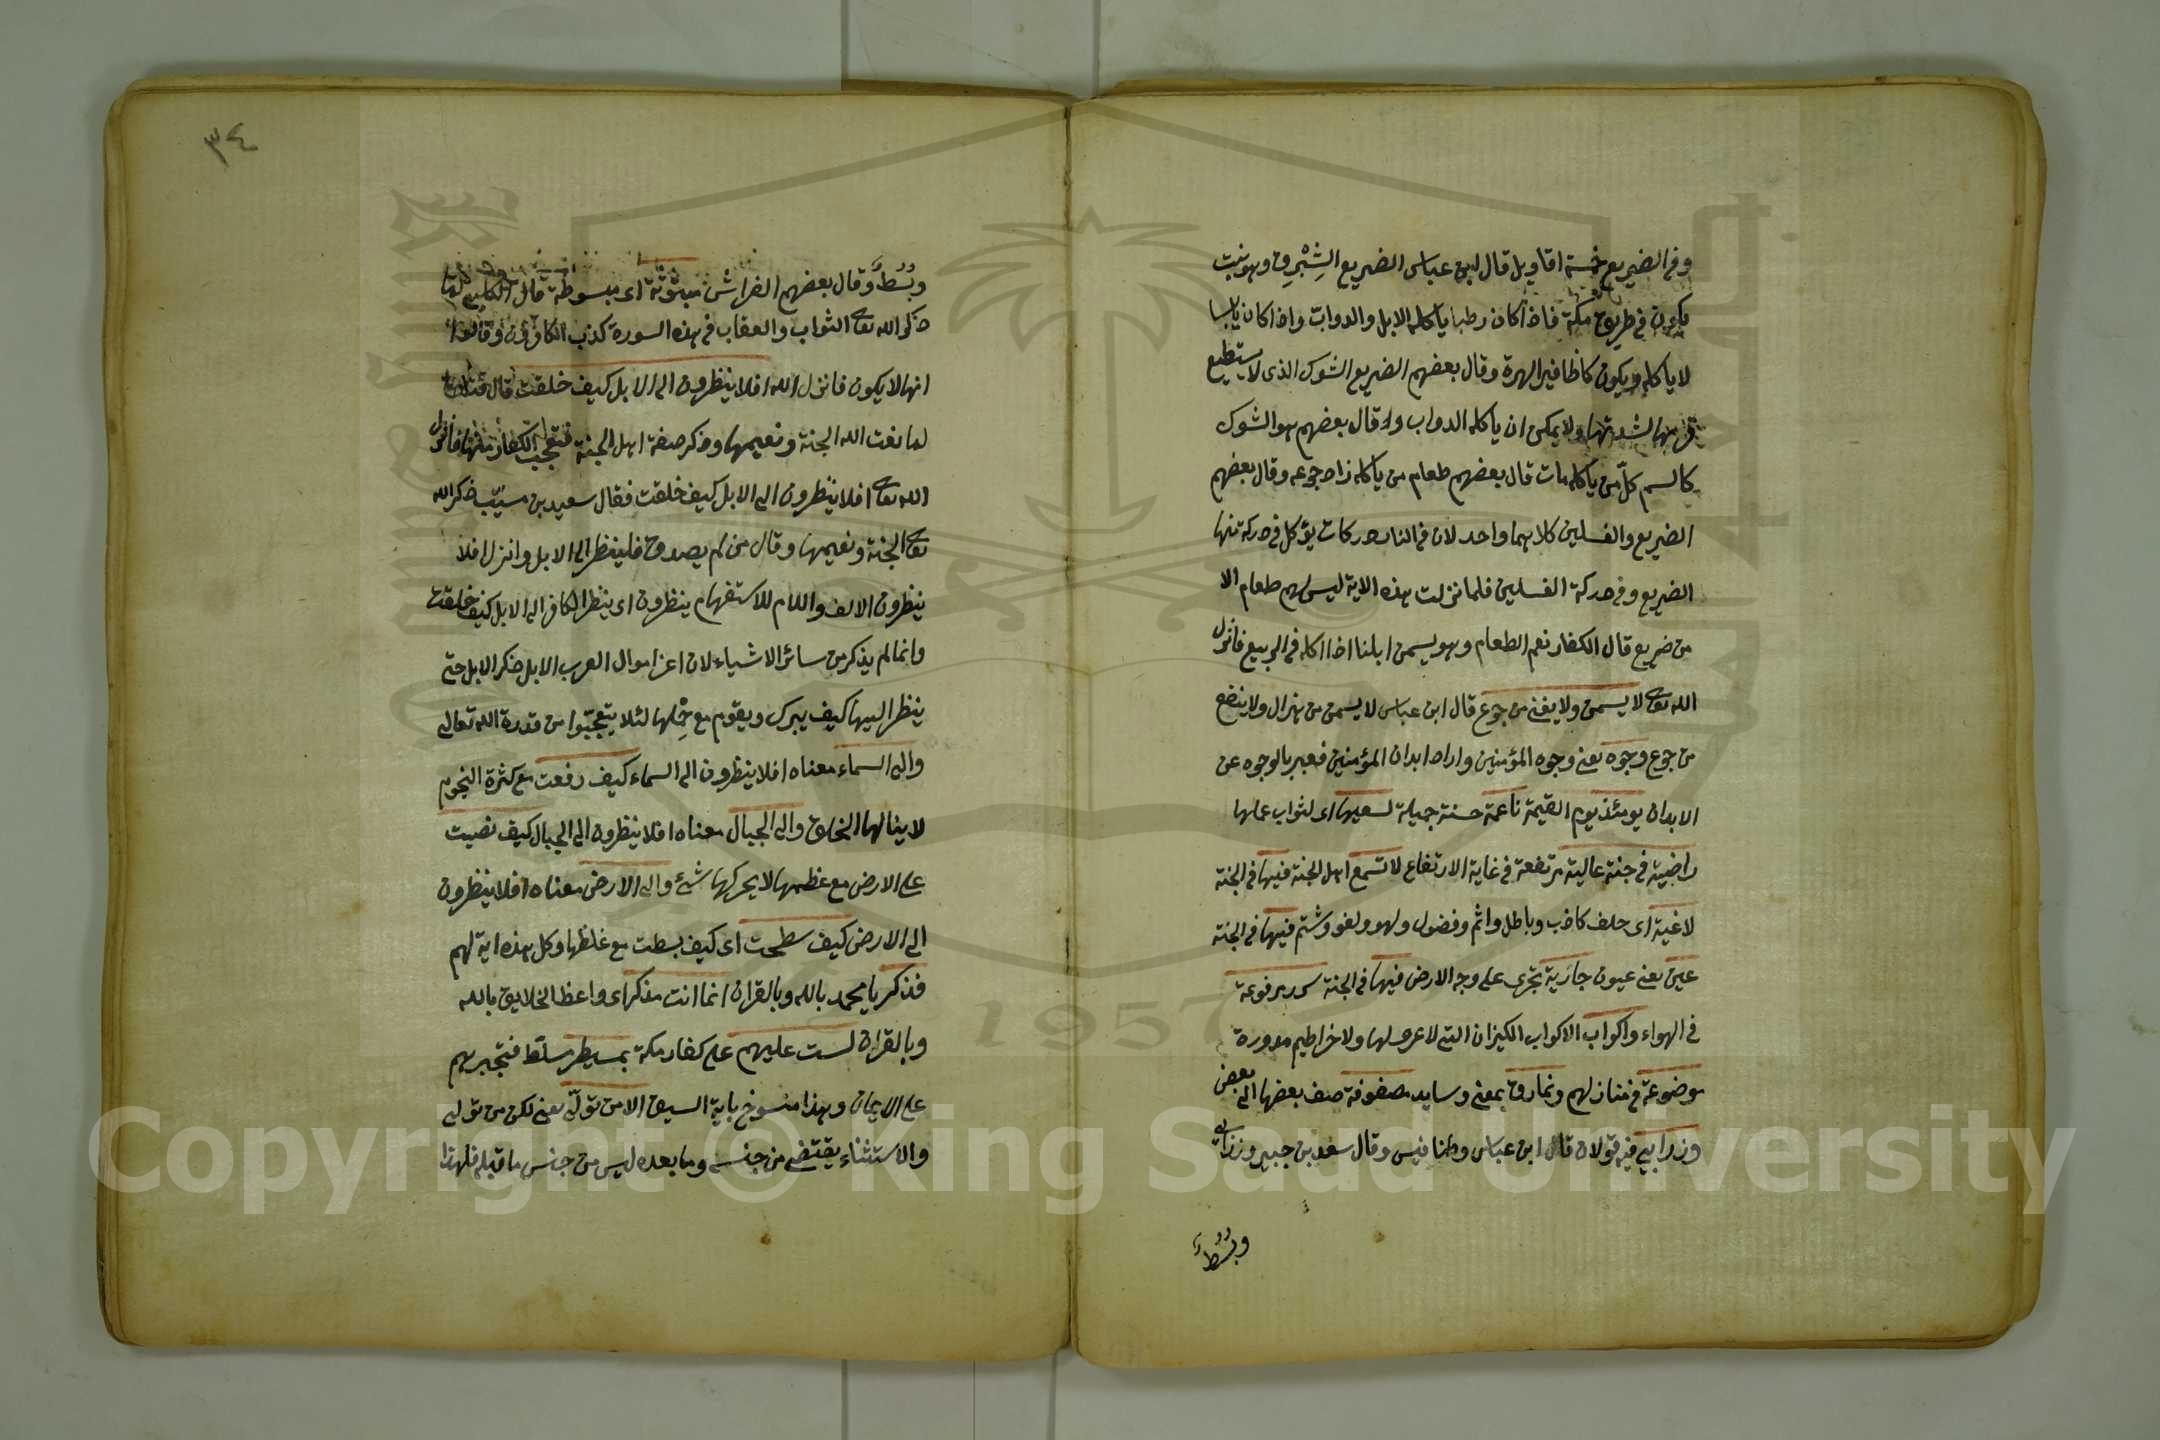 وفى الضريع خمسة اقاويل قال ابن عباس الضريع الشِبْرِق وهو نبت
يكون فى طريق مكة فاذا كان رطبا يأكله الابل والدواب واذا كان يابسا
لا يأكله ويكون كاظافير الهرة وقال بعضهم الضريع الشوك الذى لا يستطيع
ولا يمكن ان يأكله الدواب وقال بعضهم هو الشوك
كالسم كلّ من يأكله مات قال بعضهم طعام من يأكله زاد جوعه وقال بعضهم
الضريع والغسلين كلاهما واحد لان فى النار دركات يؤكل فى دركة منها
الضريع وفى دركة الغسلين فلما نزلت هذه الاية ليس لهم طعام الا
من ضريع قال الكفار نعم الطعام وهو يسمن ابلنا اذا اكله فى الربيع فانزل
الله تعالى لا يسمن ولا يغنى من جوع قال ابن عباس لا يسمن من هزال ولا ينفع
من جوع وجوه يعنى وجوه المؤمنين واراد ابدان المؤمنين فعبر بالوجوه عن
الابدان يومئذ يوم القيمة ناعمة حسنة جميلة لسعيها اى لثواب عملها
راضية فى جنة عالية مرتفعة فى غاية الارتفاع لا تسمع اهل الجنة فيها فى الجنة
لاغية اى حلف كاذب وباطل واثم وفضول ولهو ولغو وشتم فيها فى الجنة
عين يعنى عيون جارية تجرى على وجه الارض فيها فى الجنة سرر مرفوعة
فى الهواء واكواب الاكواب الكيزان التى لا عرى لها ولا خراطيم مدورة
موضوعة فى منازلهم ونمارق بمعنى وسايد مصفوفة صف بعضها الى بعض
وزرابى فيه قولان قال ابن عباس وطنافيس وقال سعد بن جبير وزرابى
وبُسُطٌ
٣٤
وبُسُطٌ وقال بعضهم الفراش مبثوثة اى مبسوطة قال الكلبى لما
ذكر الله تعالى الثواب والعقاب فى هذه السورة كذب الكافرون وقالوا
انها لا يكون فانزل الله افلا ينظرون الى الابل كيف خلقت قال قتادة
لما نعت الله الجنة ونعيمها وذكر صفة اهل الجنة فتعجب الكفار منها فانزل
الله تعالى افلا ينظرون الى الابل كيف خلقت فقال سعيد بن مسيّب ذكر الله
تعالى الجنة ونعيمها وقال من لم يصدق فلينظر الى الابل وانزل افلا
ينظرون الالف واللام للاستفهام ينظرون اى ينظر الكافر الى الابل كيف خلقت
وانما لم يذكر من سائر الاشياء لان اعز اموال العرب الابل ذكر الابل حتى
ينظر اليها كيف يبرك ويقوم مع حِملها لئلا يتعجّبوا من قدرة الله تعالى
والى السماء معناه افلا ينظرون الى السماء كيف رفعت مع كثرة النجوم
لا ينالها الخلق والى الجبال معناه افلا ينظرون الى الجبال كيف نصبت
على الارض مع عظمها لا يحركها شئ والى الارض معناه افلا ينظرون
الى الارض كيف سطحت اى كيف بسطت مع غلظها وكل هذه اية لهم
فذكر يا محمد بالله وبالقران انما انت مذكر اى واعظ الخلايق بالله
وبالقران لست عليهم على كفار مكة بمسيطر مسلّط فتجبرهم
على الايمان وهذا منسوخ باية السيف الا من تولّى يعنى لكن من تولى
والاستثناء يقتضى من جنسه وما بعده ليس من جنس ما قبله فلهذا
1957
Copyright © King Saud University